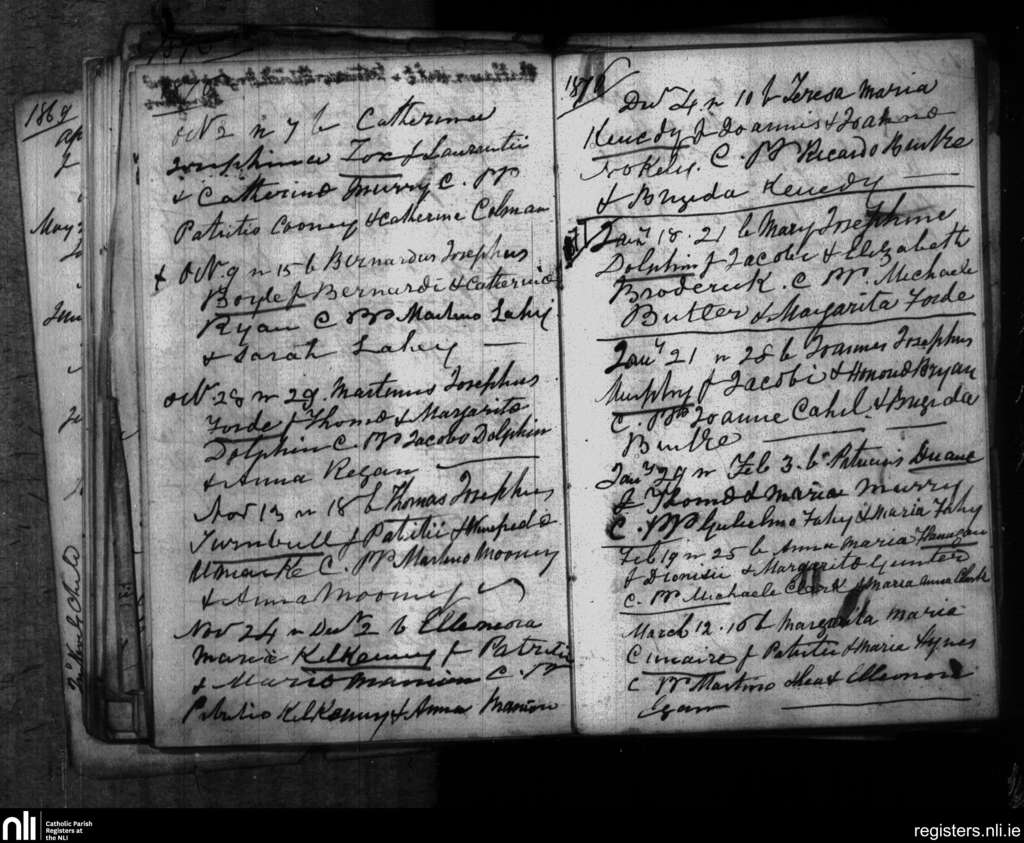 1869
May
Jun
Oct 2 n 7 b Catherina
Josephina Fox f Laurentii
& Catherinæ Murry C. PP
Patritio Cooney & Catherine Colman
+ Oct. 9 n 15 b Bernardus Josephus
Boyle f Bernardi & Catherinæ
Ryan C PP Martino Lahy
& Sarah Lahey
Oct. 28 n 29. Martinus Josephus
Forde f Thomæ & Margarita
Dolphin C. PP Jacobo Dolphin
& Anna Regan
Nov 13 n 18 b Thomas Josephus
Turnbull f Patritii & Winefredæ
C. PP Martino Mooney
& Anna Mooney
Nov 24 n Decr 2 b Elleonora
Maria Kilkenny f Patritii
& Maria Mannion C. PP
Patritio Kilkenny & Anna Mannion
1870
Decr 4 n 10 b Teresa Maria
Kenedy f Joannis & Joanna
C. PP Ricardo Burke
& Brigida Kenedy
Jany 18. 21 b Mary Josephine
Dolphin f Jacobi & Elizabeth
Broderick. C PP. Michaele
Butler & Margarita Forde
Jany 21 n 28 b Joannes Josephus
Murphy f Jacobi & Honora Bryan
C. PP Joanne Cahil & Brigida
Burke
Jany 29 n Feb 3. b Patricius Duane
f Thomæ & Maria Murry
C. PP Gulielmo Fahy & Maria Fahy
Feb 19 n 25 b Anna Maria Flanagan
f Dionisii & Margarita Gunter
C. PP Michaele Clark & Maria Anna Clark
March 12. 16 b Margarita Maria
f Patritii & Maria Hynes
C PP Martino Shea & Elleonora
Egan
nli
Catholic Parish
Registers at
the NLI
registers.nli.ie